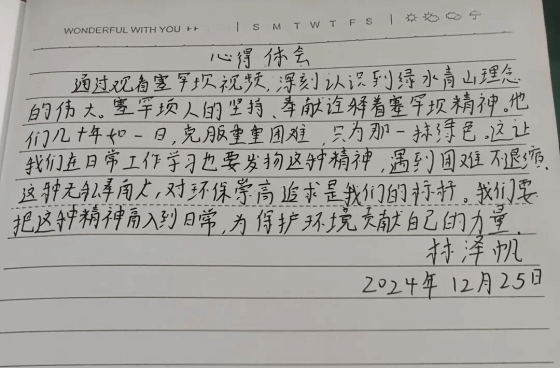 WONDERFUL WITH YOU ++ | S M T W T F S |
心得体会
通过观看塞罕坝视频,深刻认识到绿水青山理念
的伟大。塞罕坝人的坚持、奉献诠释着塞罕坝精神。他
们几十年如一日,克服重重困难,只为那一抹绿色。这让
我们在日常工作学习也要发扬这种精神,遇到困难不退缩,
这种无私奉献,对环保崇高追求是我们的标杆。我们要
把这种精神融入到日常,为保护环境贡献自己的力量。
林泽帆
2024年12月25日